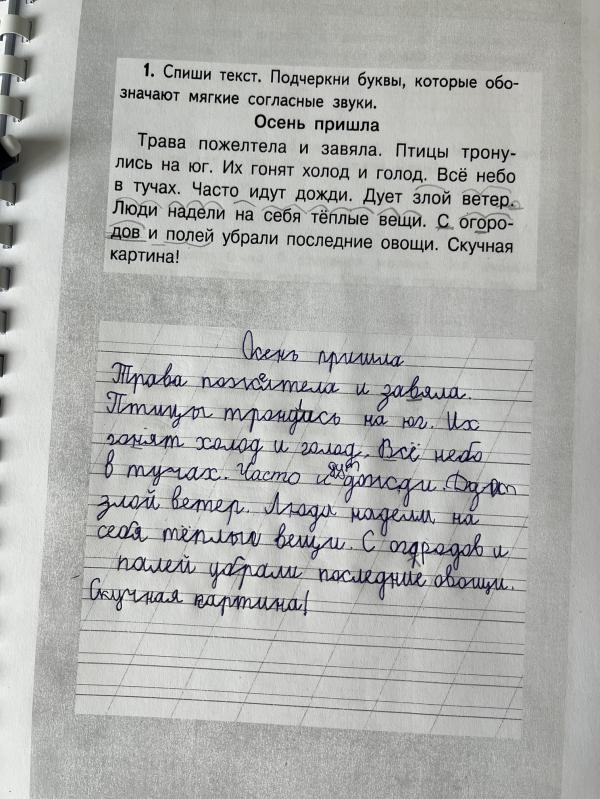 1. Спиши текст. Подчеркни буквы, которые обо-
значают мягкие согласные звуки.
Осень пришла
Трава пожелтела и завяла. Птицы трону-
лись на юг. Их гонят холод и голод. Всё небо
в тучах. Часто идут дожди. Дует злой ветер.
Люди надели на себя тёплые вещи. С огоро-
дов и полей убрали последние овощи. Скучная
картина!
Осень пришла
Трава и завяла.
Птицы на юг. Их
гонят холод и голод. Всё небо
в тучах. Часто дожди.
злой ветер. Люди надели на
себя вещи. С и
полей убрали последние овощи.
Скучная картина!